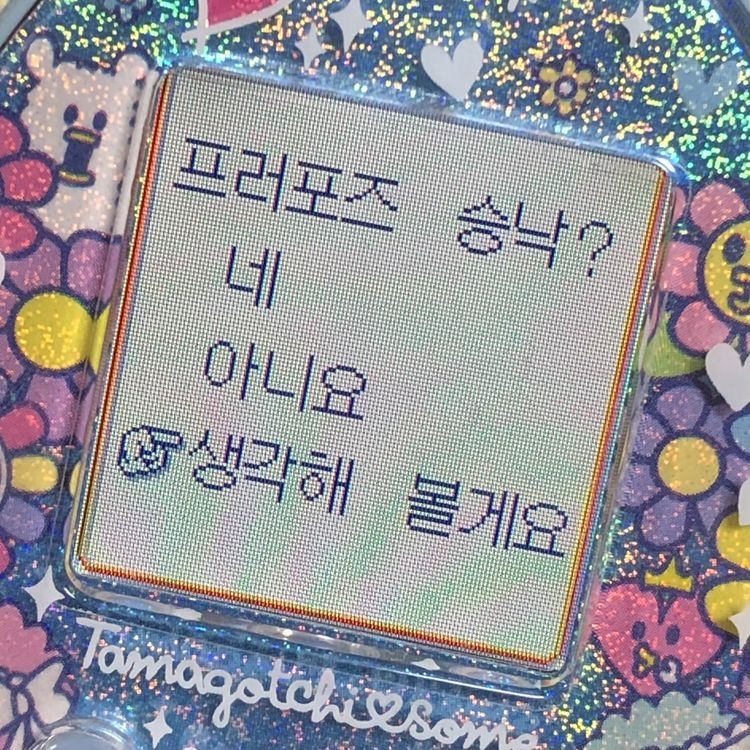 프러포즈 승낙?
네
아니요
생각해 볼게요
Tamagotchi♡some